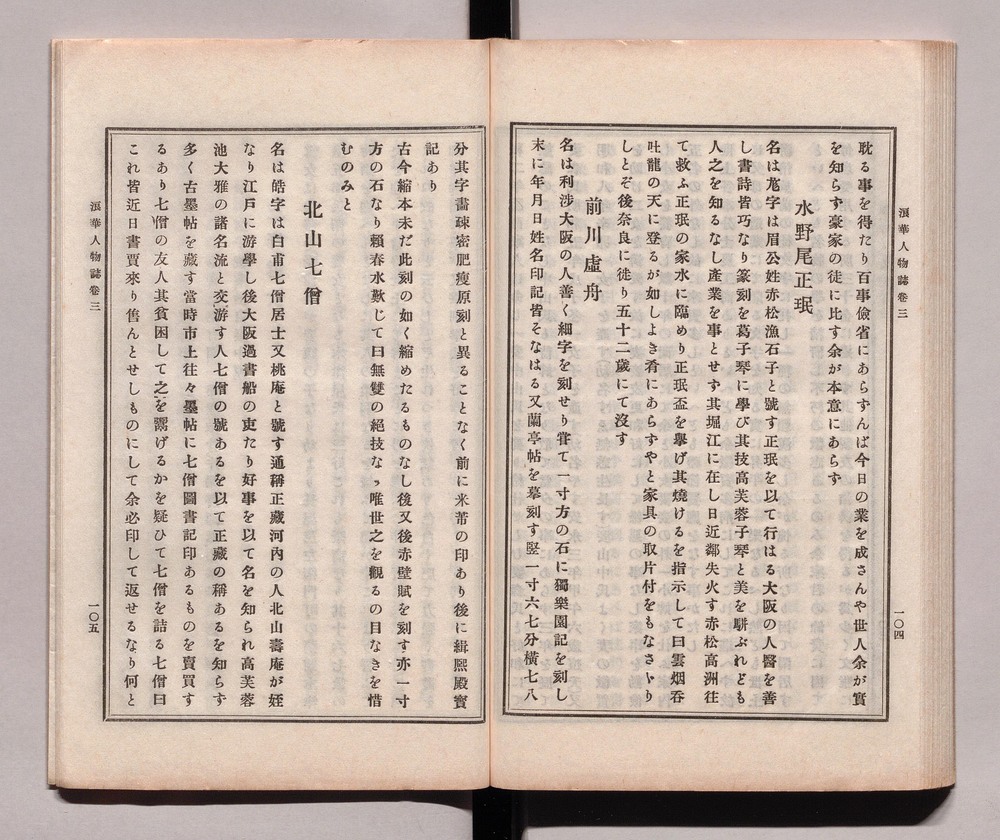 浪華人物誌卷三
耽る事を得たり百事儉省にあらずんば今日の業を成さんや世人余が實
を知らず豪家の徒に比す余が本意にあらず
水野尾正珉
名は尨字は眉公姓赤松漁石子と號す正珉を以て行はる大阪の人醫を善
し書詩皆巧なり篆刻を葛子琴に學び其技高芙蓉子琴と美を駢ぶれども
人之を知るなし產業を事とせず其堀江に在し日近鄰失火す赤松高洲往
て救ふ正珉の家水に臨めり正珉盃を擧げ其燒けるを指示して曰雲烟呑
吐龍の天に登るが如しよき肴にあらずやと家具の取片付をもなさゝり
しとぞ後奈良に徙り五十二歲にて沒す
前川虛舟
名は利涉大阪の人善く細字を刻せり甞て一寸方の石に獨樂園記を刻し
末に年月日姓名印記皆そなはる又蘭亭帖を摹刻す竪一寸六七分橫七八
一〇四
分其字畫疎密肥瘦原刻と異ることなく前に米芾の印あり後に緝熙殿寶
記あり
古今縮本未だ此刻の如く縮めたるものなし後又後赤壁賦を刻す亦一寸
方の石なり賴春水歎じて曰無雙の絕技なり唯世之を觀るの目なきを惜
むのみと
北山七僧
名は皓字は白甫七僧居士又桃庵と號す通稱正藏河內の人北山壽庵が姪
なり江戶に游學し後大阪過書船の吏たり好事を以て名を知られ高芙蓉
池大雅の諸名流と交游す人七僧の號あるを以て正藏の稱あるを知らず
多く古墨帖を藏す當時市上往々墨帖に七僧圖書記印あるものを賣買す
るあり七僧の友人其貧困して之を鬻げるかを疑ひて七僧を詰る七僧曰
これ皆近日書賈來り售んとせしものにして余必印して返せるなり何と
浪華人物誌卷三
一〇五